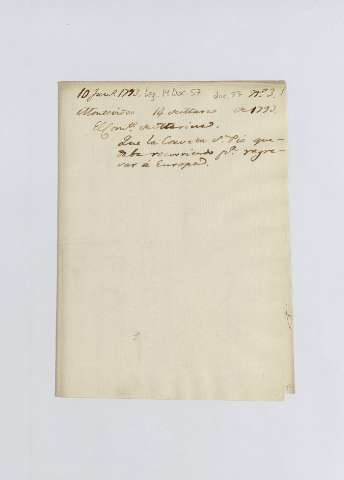 10 Jun.o 1793. Leg. 14 Doc. 57 doc. 57 Nº 3.
Montevideo 14 de Marzo de 1793.
El Com.te de Marina.
Que la Corveta Sta Pia que-
daba recorriendo pa. regre-
sar á Europa.